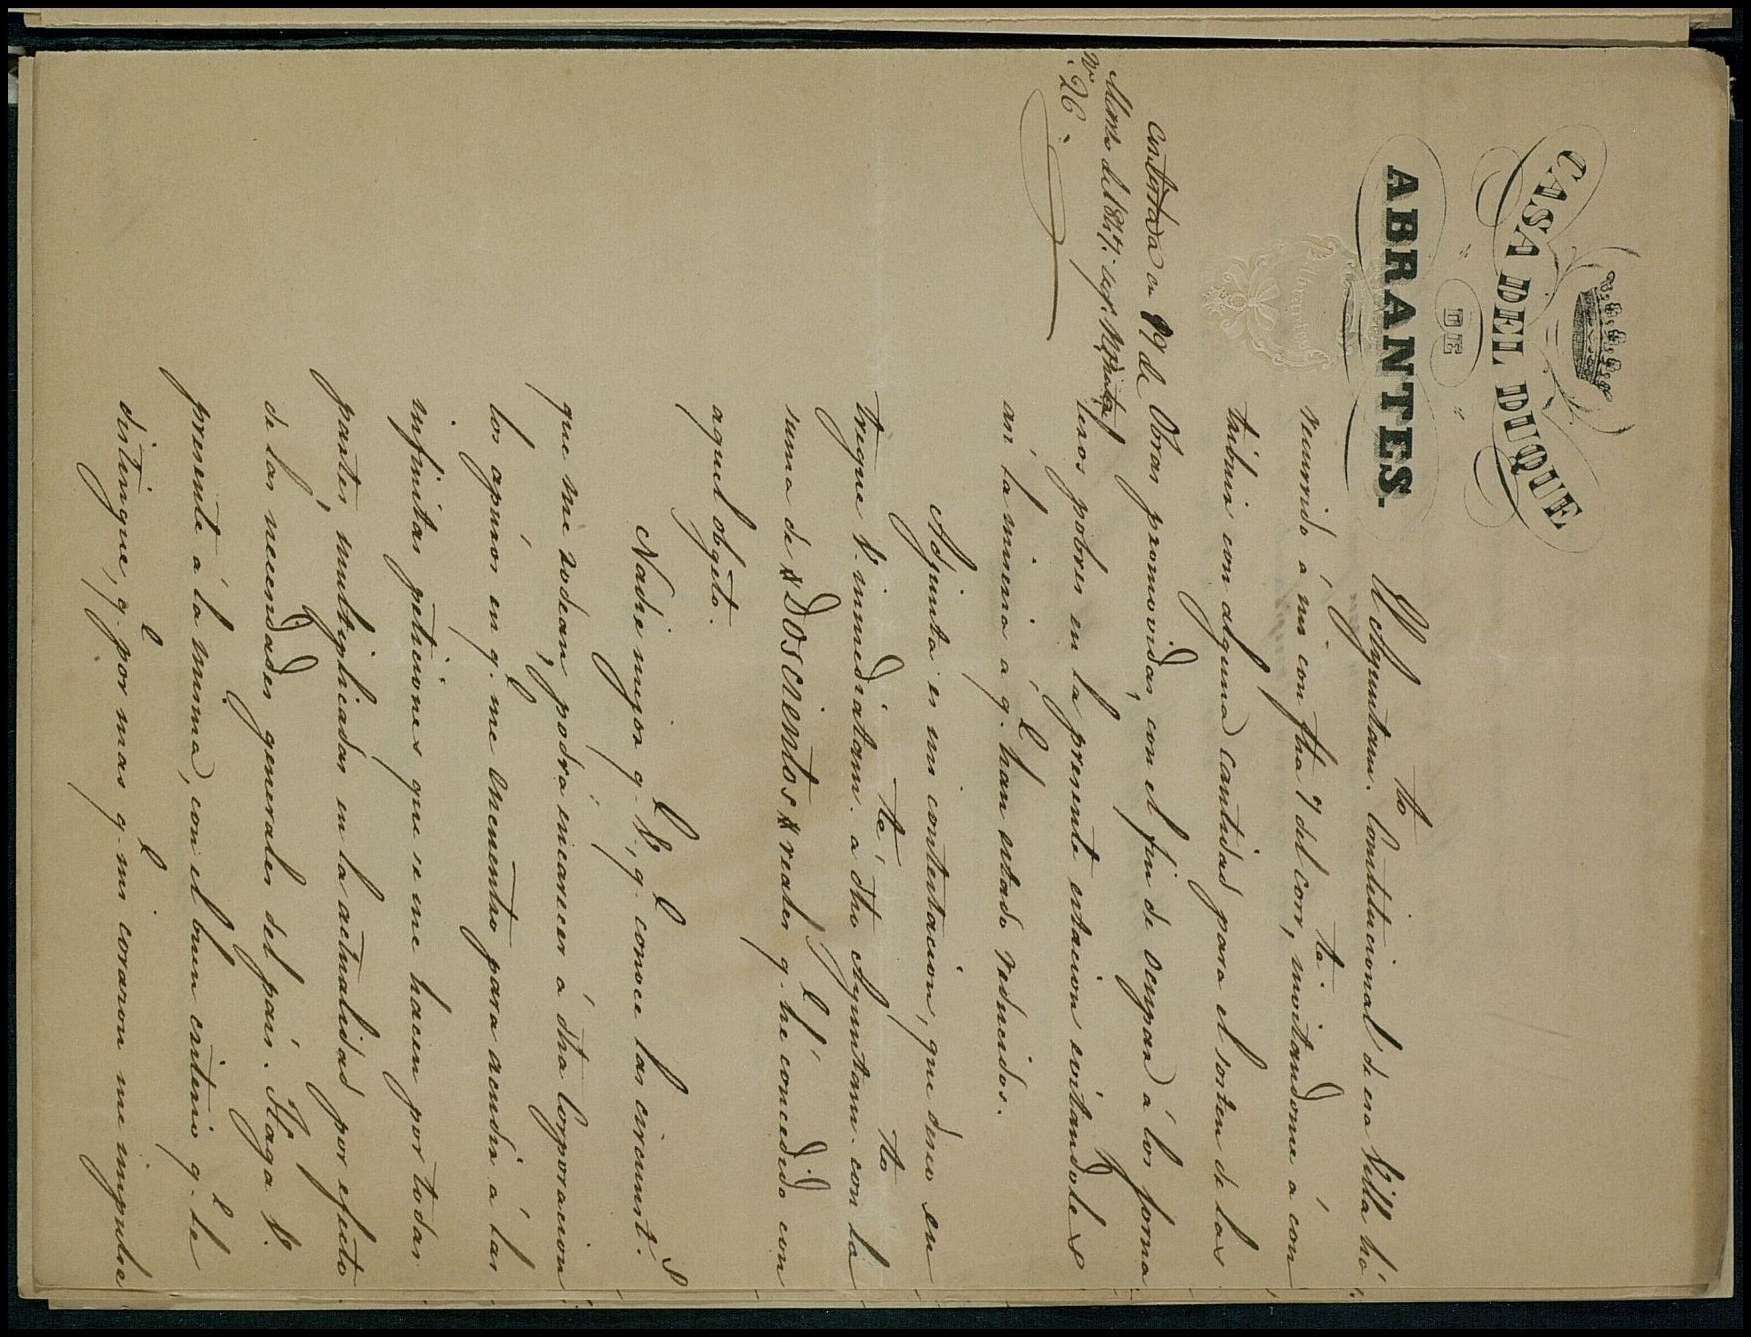 CASA DEL DUQUE
DE
ABRANTES.
Contestada en 19 de
Marzo del 1847. seg.
Nº 26.
El Ayuntam.to Constitucional de esa Villa há
recurrido á mi con fha 9 del corr.te, invitandome á con
tribuir con alguna cantidad para el sosten de las
Obras promovidas, con el fin de ocupar á los jorna
leros pobres en la presente estacion evitandoles
asi la miseria á q.e han estado reducidos.
Adjunta es mi contestacion, que deseo en
tregue V. inmediatam.te á dho Ayuntam.to con la
suma de Doscientos reales q.e le he concedido con
aquel obgeto.
Nadie mejor q.e V., q.e conoce las circunst.s
que me rodean, podrá encarecer á dha Corporacion
los apuros en q.e me encuentro para acudir á las
infinitas peticiones que se me hacen por todas
partes, multiplicadas en la actualidad por efecto
de las necesidades generales del pais. Haga V.
presente á la misma, con el buen criterio q.e le
distingue, q.e por mas q.e mi corazon me impulse